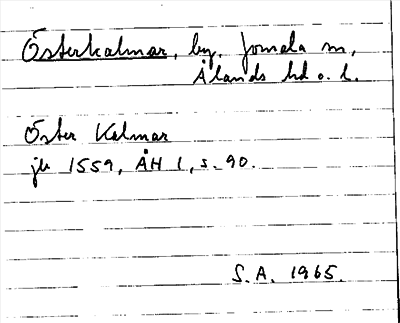 Österkalmar, by, Jomala sn,
Ålands hd o. l.
Öster Kalmar
jb 1559, ÅH 1, s. 90.
S.A. 1965.